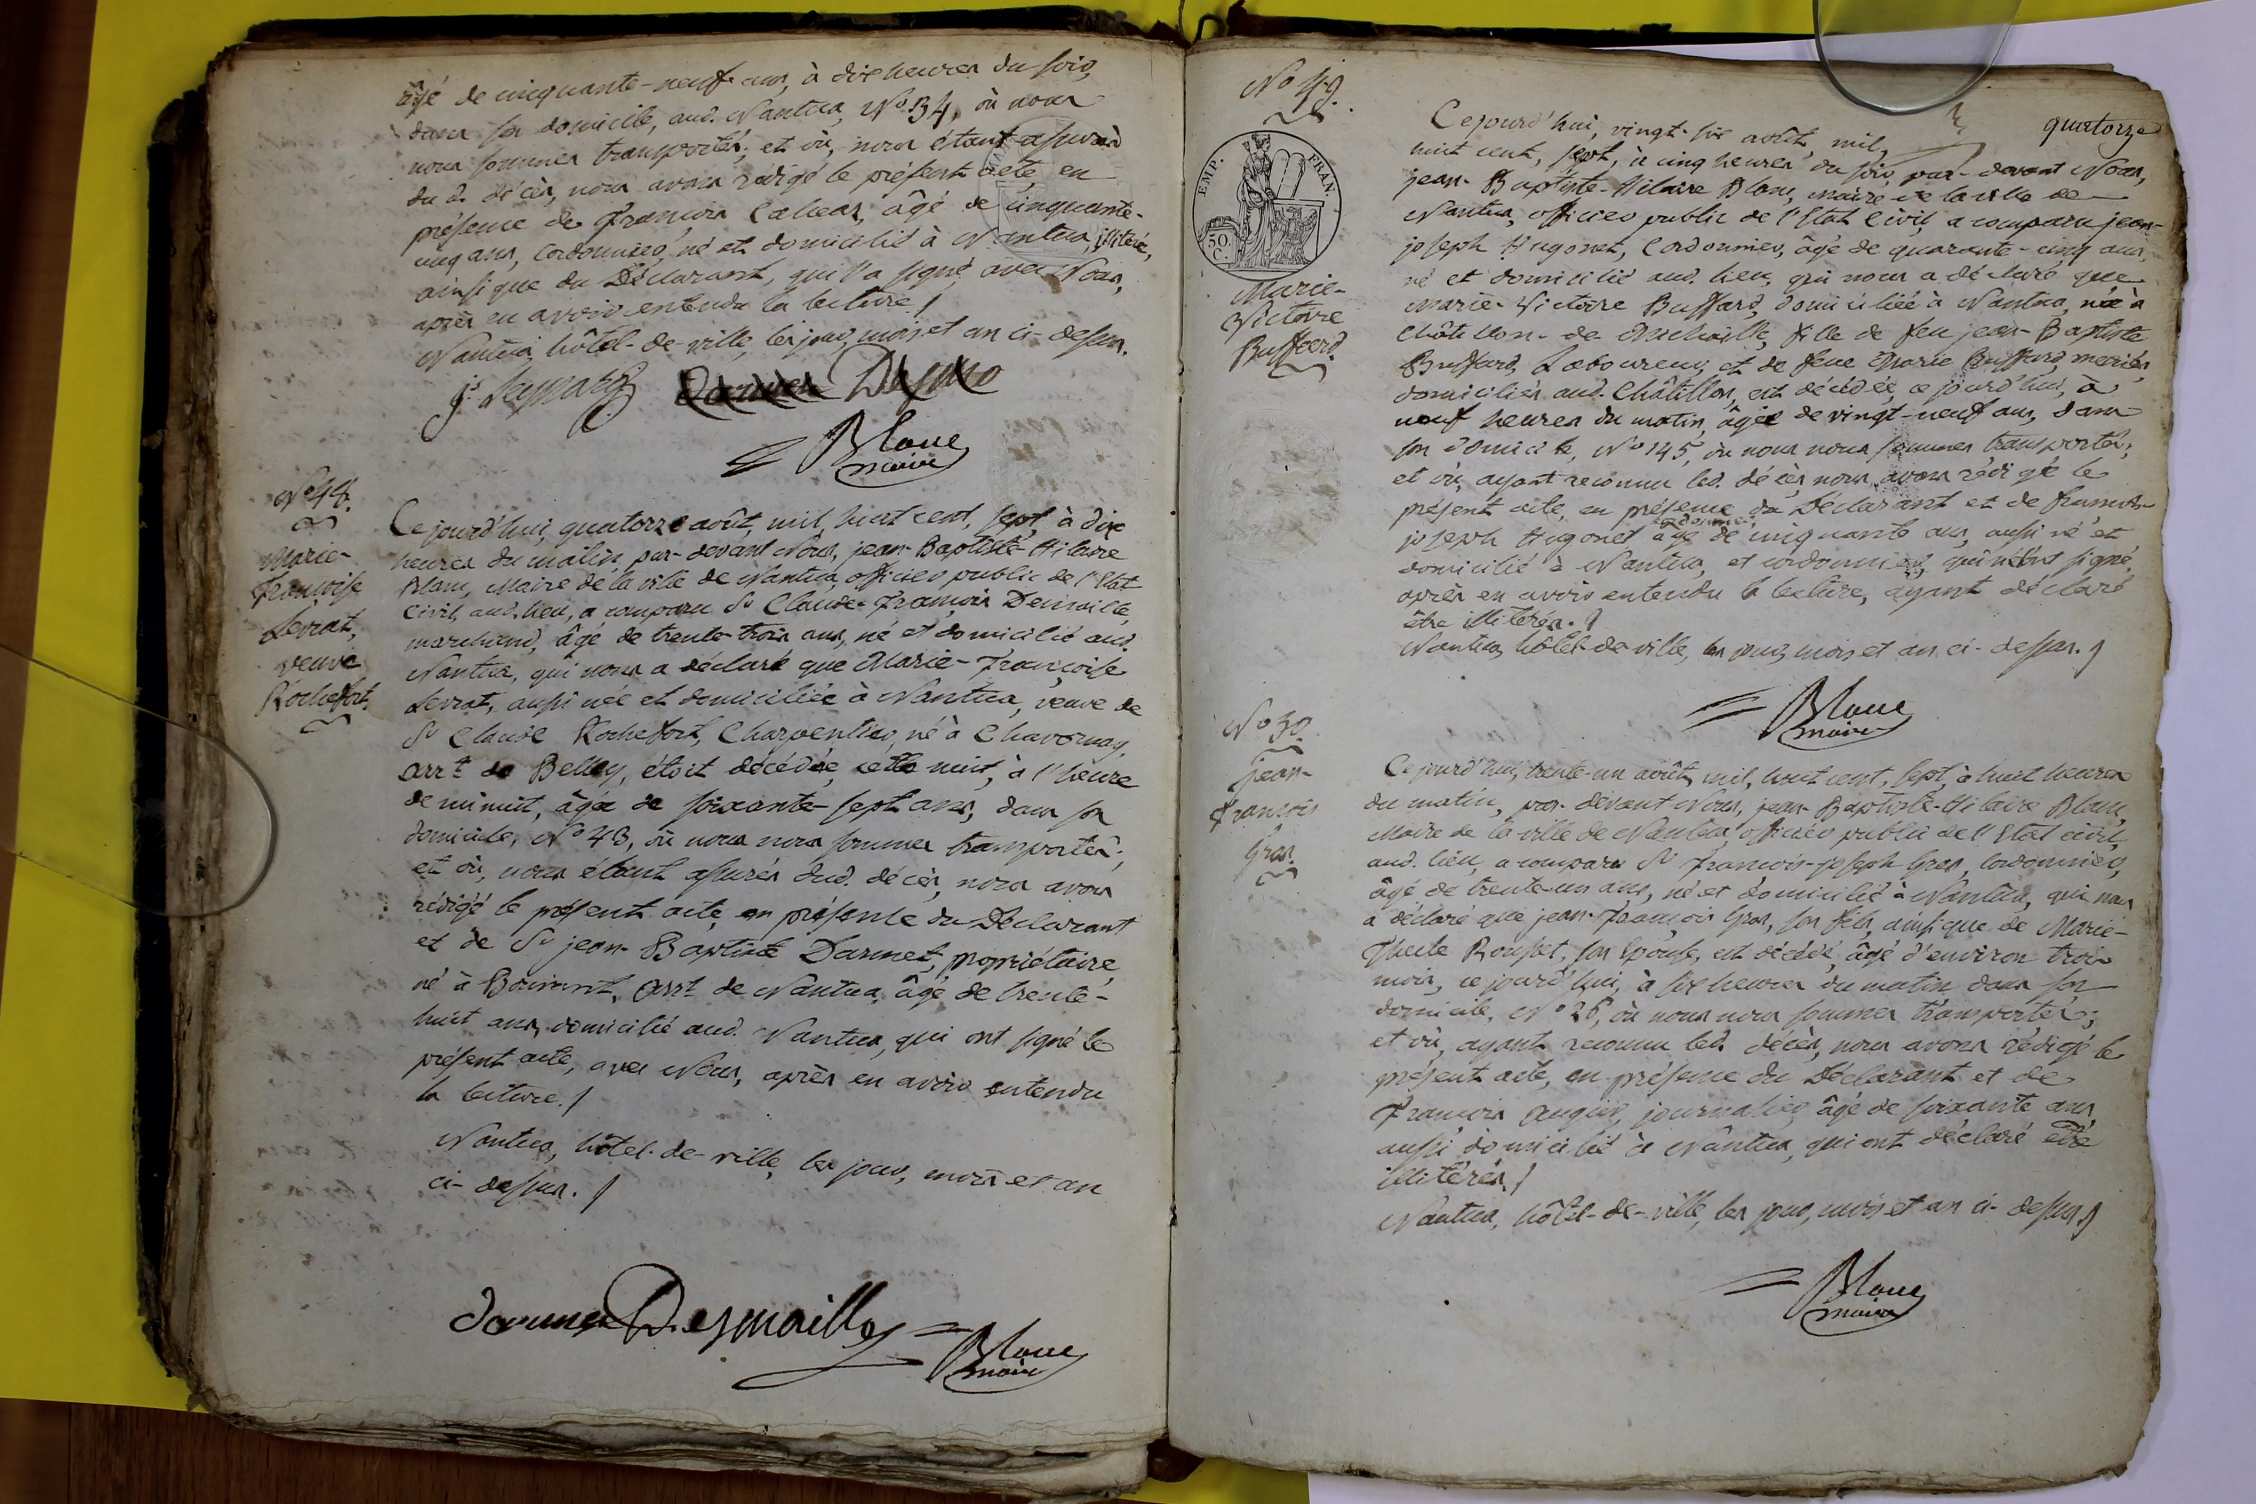 âgé de cinquante-neuf ans, à dix heures du soir,
dans son domicile, aud. Nantua, No 34, où nous
nous sommes transportés; et où, nous étant assurés
du d. décès, nous avons rédigé le présent acte, en
présence de François, âgé de cinquante-
cinq ans, cordonnier, né et domicilié à Nantua, illitéré,
ainsi que du Déclarant, qui l'a signé, avec Nous,
après en avoir entendu la lecture./
Nantua, hôtel-de-ville, les jour, mois et an ci-dessus.
Blanc
maire
No 48.
Marie-
Françoise
Levrat,
veuve
Rochefort
Ce jourd'hui, quatorze août, mil, huit cent, sept, à dix
heures du matin, par-devant Nous, jean-Baptiste-Hilaire
Blanc, Maire de la ville de Nantua, officier public de l'Etat
Civil, aud. lieu, a comparu Sr Claude-François Demaille,
marchand, âgé de trente-trois ans, né et domicilié aud.
Nantua, qui nous a déclaré que Marie-Françoise
Levrat, aussi née et domiciliée à Nantua, veuve de
Sr Claude Rochefort, Charpentier, né à Chavornay,
arrt de Belley, étoit décédée, cette nuit, à l'heure
de minuit, âgée de soixante-sept ans, dans son
domicile, No 43, où nous nous sommes transportés;
et où, nous étant assurés dud. décès, nous avons
rédigé le présent acte, en présence du Déclarant
et de Sr jean-Baptiste Darmet, propriétaire,
né à, arrt de Nantua, âgé de trente-
huit ans, domicilié aud. Nantua, qui ont signé le
présent acte, avec Nous, après en avoir entendu
la lecture./
Nantua, hôtel-de-ville, les jour, mois et an
ci-dessus./
Darmet Desmailles
Blanc
maire
quatorze
No 49.
EMP. FRAN.
50.
C.
Marie-
Victoire
Buffard
Ce jourd'hui, vingt-six août, mil,
huit cent, sept, à cinq heures du soir, par-devant Nous,
jean-Baptiste-Hilaire Blanc, maire de la ville de
Nantua, officier public de l'Etat Civil, a comparu jean-
joseph Hugonet, Cordonnier, âgé de quarante-cinq ans,
né et domicilié aud. lieu, qui nous a déclaré que
Marie-Victoire Buffard, domiciliée à Nantua, née à
Châtillon-de-Michaille, fille de feu jean-Baptiste
Buffard, Laboureur, et de feue Marie Buffard, mariés,
domiciliés aud. Châtillon, est décédée, ce jourd'hui, à
neuf heures du matin, âgée de vingt-neuf ans, dans
son domicile, No 145, où nous nous sommes transportés;
et où, ayant reconnu led. décès, nous avons rédigé le
présent acte, en présence du Déclarant et de François-
joseph Hugonet âgé de cinquante ans, aussi né et
domicilié à Nantua, et cordonnier, qui n'ont signé,
après en avoir entendu la lecture, ayant déclaré
être illitérés./
Nantua, hôtel-de-ville, les jour, mois et an ci-dessus./
Blanc
maire
No 50.
jean-
François
Gras.
Ce jourd'hui, trente-un août, mil, huit cent, sept, à huit heures
du matin, par-devant Nous, jean-Baptiste-Hilaire Blanc,
Maire de la ville de Nantua, officier public de l'Etat civil,
aud. lieu, a comparu Sr François-joseph Gras, cordonnier,
âgé de trente-un ans, né et domicilié à Nantua, qui nous
a déclaré que jean-François Gras, son fils, ainsi que de Marie-
Thecle Rousset, son Epouse, est décédé, âgé d'environ trois
mois, ce jourd'hui, à six heures du matin, dans son
domicile, No 26, où nous nous sommes transportés;
et où, ayant reconnu led. décès, nous avons rédigé le
présent acte, en présence du Déclarant et de
François, journalier, âgé de soixante ans,
aussi domicilié à Nantua, qui ont déclaré être
illitérés./
Nantua, hôtel-de-ville, les jour, mois et an ci-dessus./
Blanc
maire